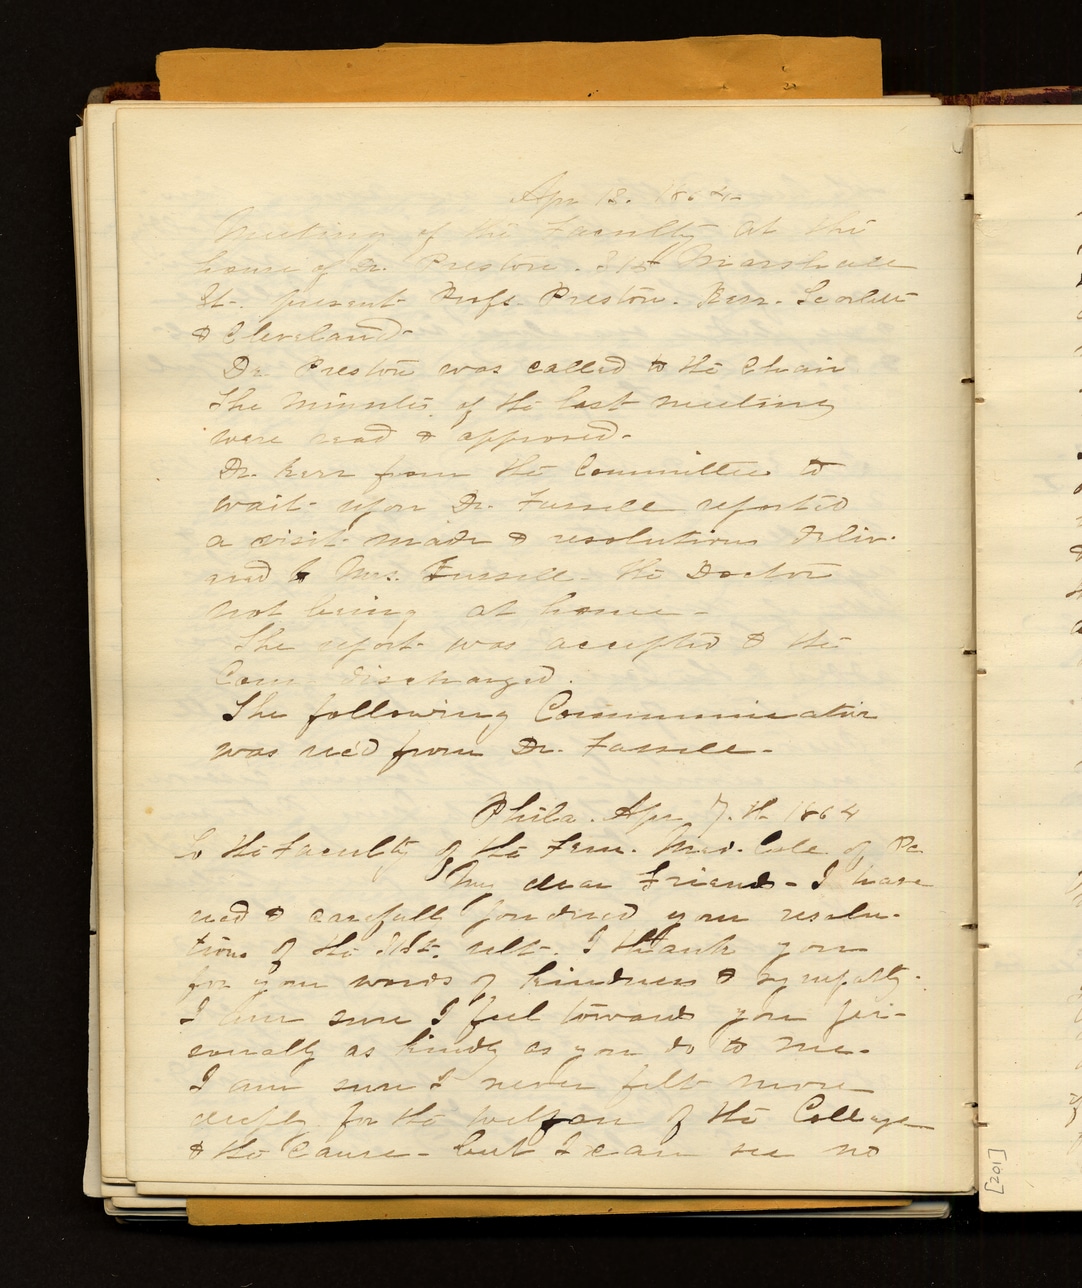 Apr 18. 1864.
Meeting of the Faculty at the
house of Dr. Preston. 315 Marshall
St. present Profs. Preston. Kerr. Scarlett
& Cleveland.
Dr. Preston was called to the Chair
The Minutes of the last meeting
were read & approved.
Dr. Kerr from the Committee to
wait upon Dr. Fussell reported
a visit made & resolutions deliv-
ered to Mrs. Fussell. the Doctor
not being at home.
The report was accepted & the
Com. discharged.
The following Communication
was rec'd from Dr. Fussell.
Phila. Apr 7. th 1864
To the Faculty of the Fem. Med. Col. of Pa
My dear Friends - I have
recd & carefully pondered your resolu-
tions of the ult. I thank you
for your words of kindness & sympathy.
I am sure I feel towards you per-
sonally as kindly as you do to me.
I am sure I never felt more
deeply for the welfare of the College
& the Cause - but I can see no
[201]